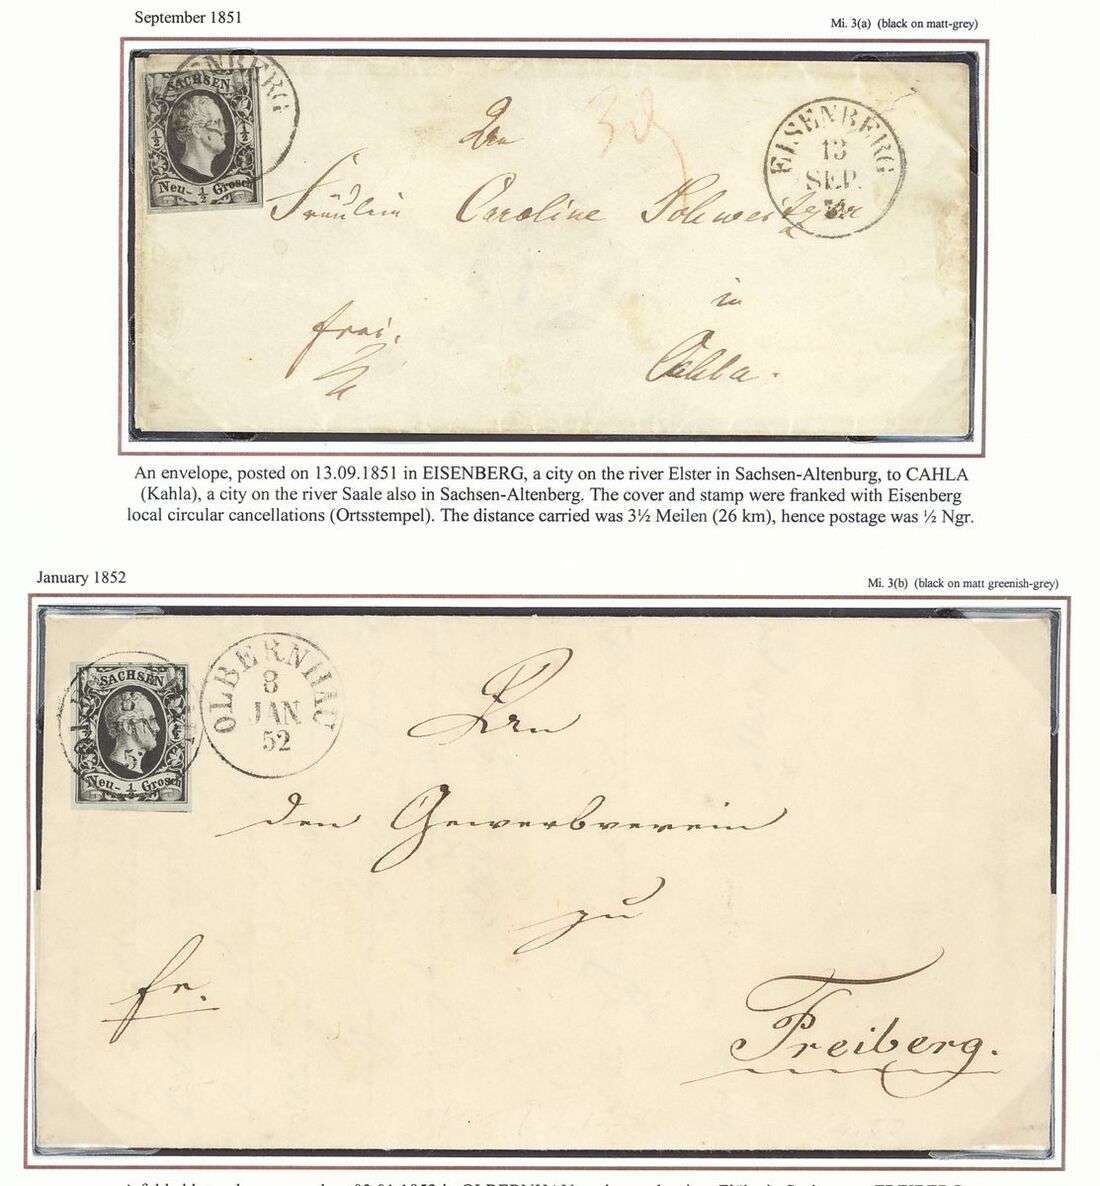 September 1851
Mi. 3(a) (black on matt-grey)
SACHSEN
½ ½
Neu- ½ Grosch
EISENBERG
EISENBERG
13
SEP.
Fräulein Caroline
in
frei.
Cahla.
An envelope, posted on 13.09.1851 in EISENBERG, a city on the river Elster in Sachsen-Altenburg, to CAHLA
(Kahla), a city on the river Saale also in Sachsen-Altenberg. The cover and stamp were franked with Eisenberg
local circular cancellations (Ortsstempel). The distance carried was 3½ Meilen (26 km), hence postage was ½ Ngr.
January 1852
Mi. 3(b) (black on matt greenish-grey)
SACHSEN
Neu- ½ Grosch
OLBERNHAU
8
JAN
52
den Gewerbverein
zu
fr.
Freiberg.